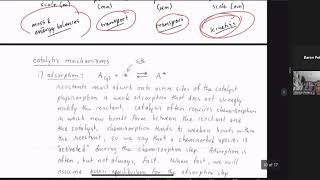 scale (m) (mm) (nm) scale (nm)
mass & energy balances transport transport kinetics
catalytic mechanisms
site
1) adsorption: A(g) + * ⇌ A*
Reactants must adsorb onto active sites of the catalyst
physisorption is weak adsorption that does not strongly
modify the reactant. catalysis often requires chemisorption
in which new bonds form between the reactant and
the catalyst. chemisorption tends to weaken bonds within
the reactant, so we say that a chemisorbed species is
"activated" during the chemisorption step. Adsorption is
often, but not always, fast. When fast, we will
assume quasi-equilibrium for the adsorption step